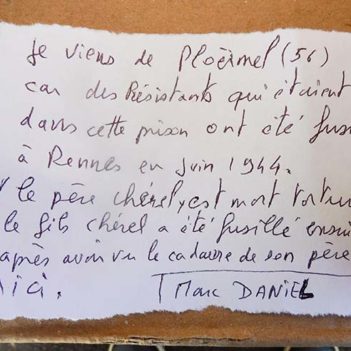 Je viens de Ploërmel (56)
car des Résistants qui étaient
dans cette prison ont été fusi
à Rennes en juin 1944.
le père chérel, est mort tortu
le fils chérel a été fusillé ensui
après avoir vu le cadavre de son père
ici.
Marc DANIEL